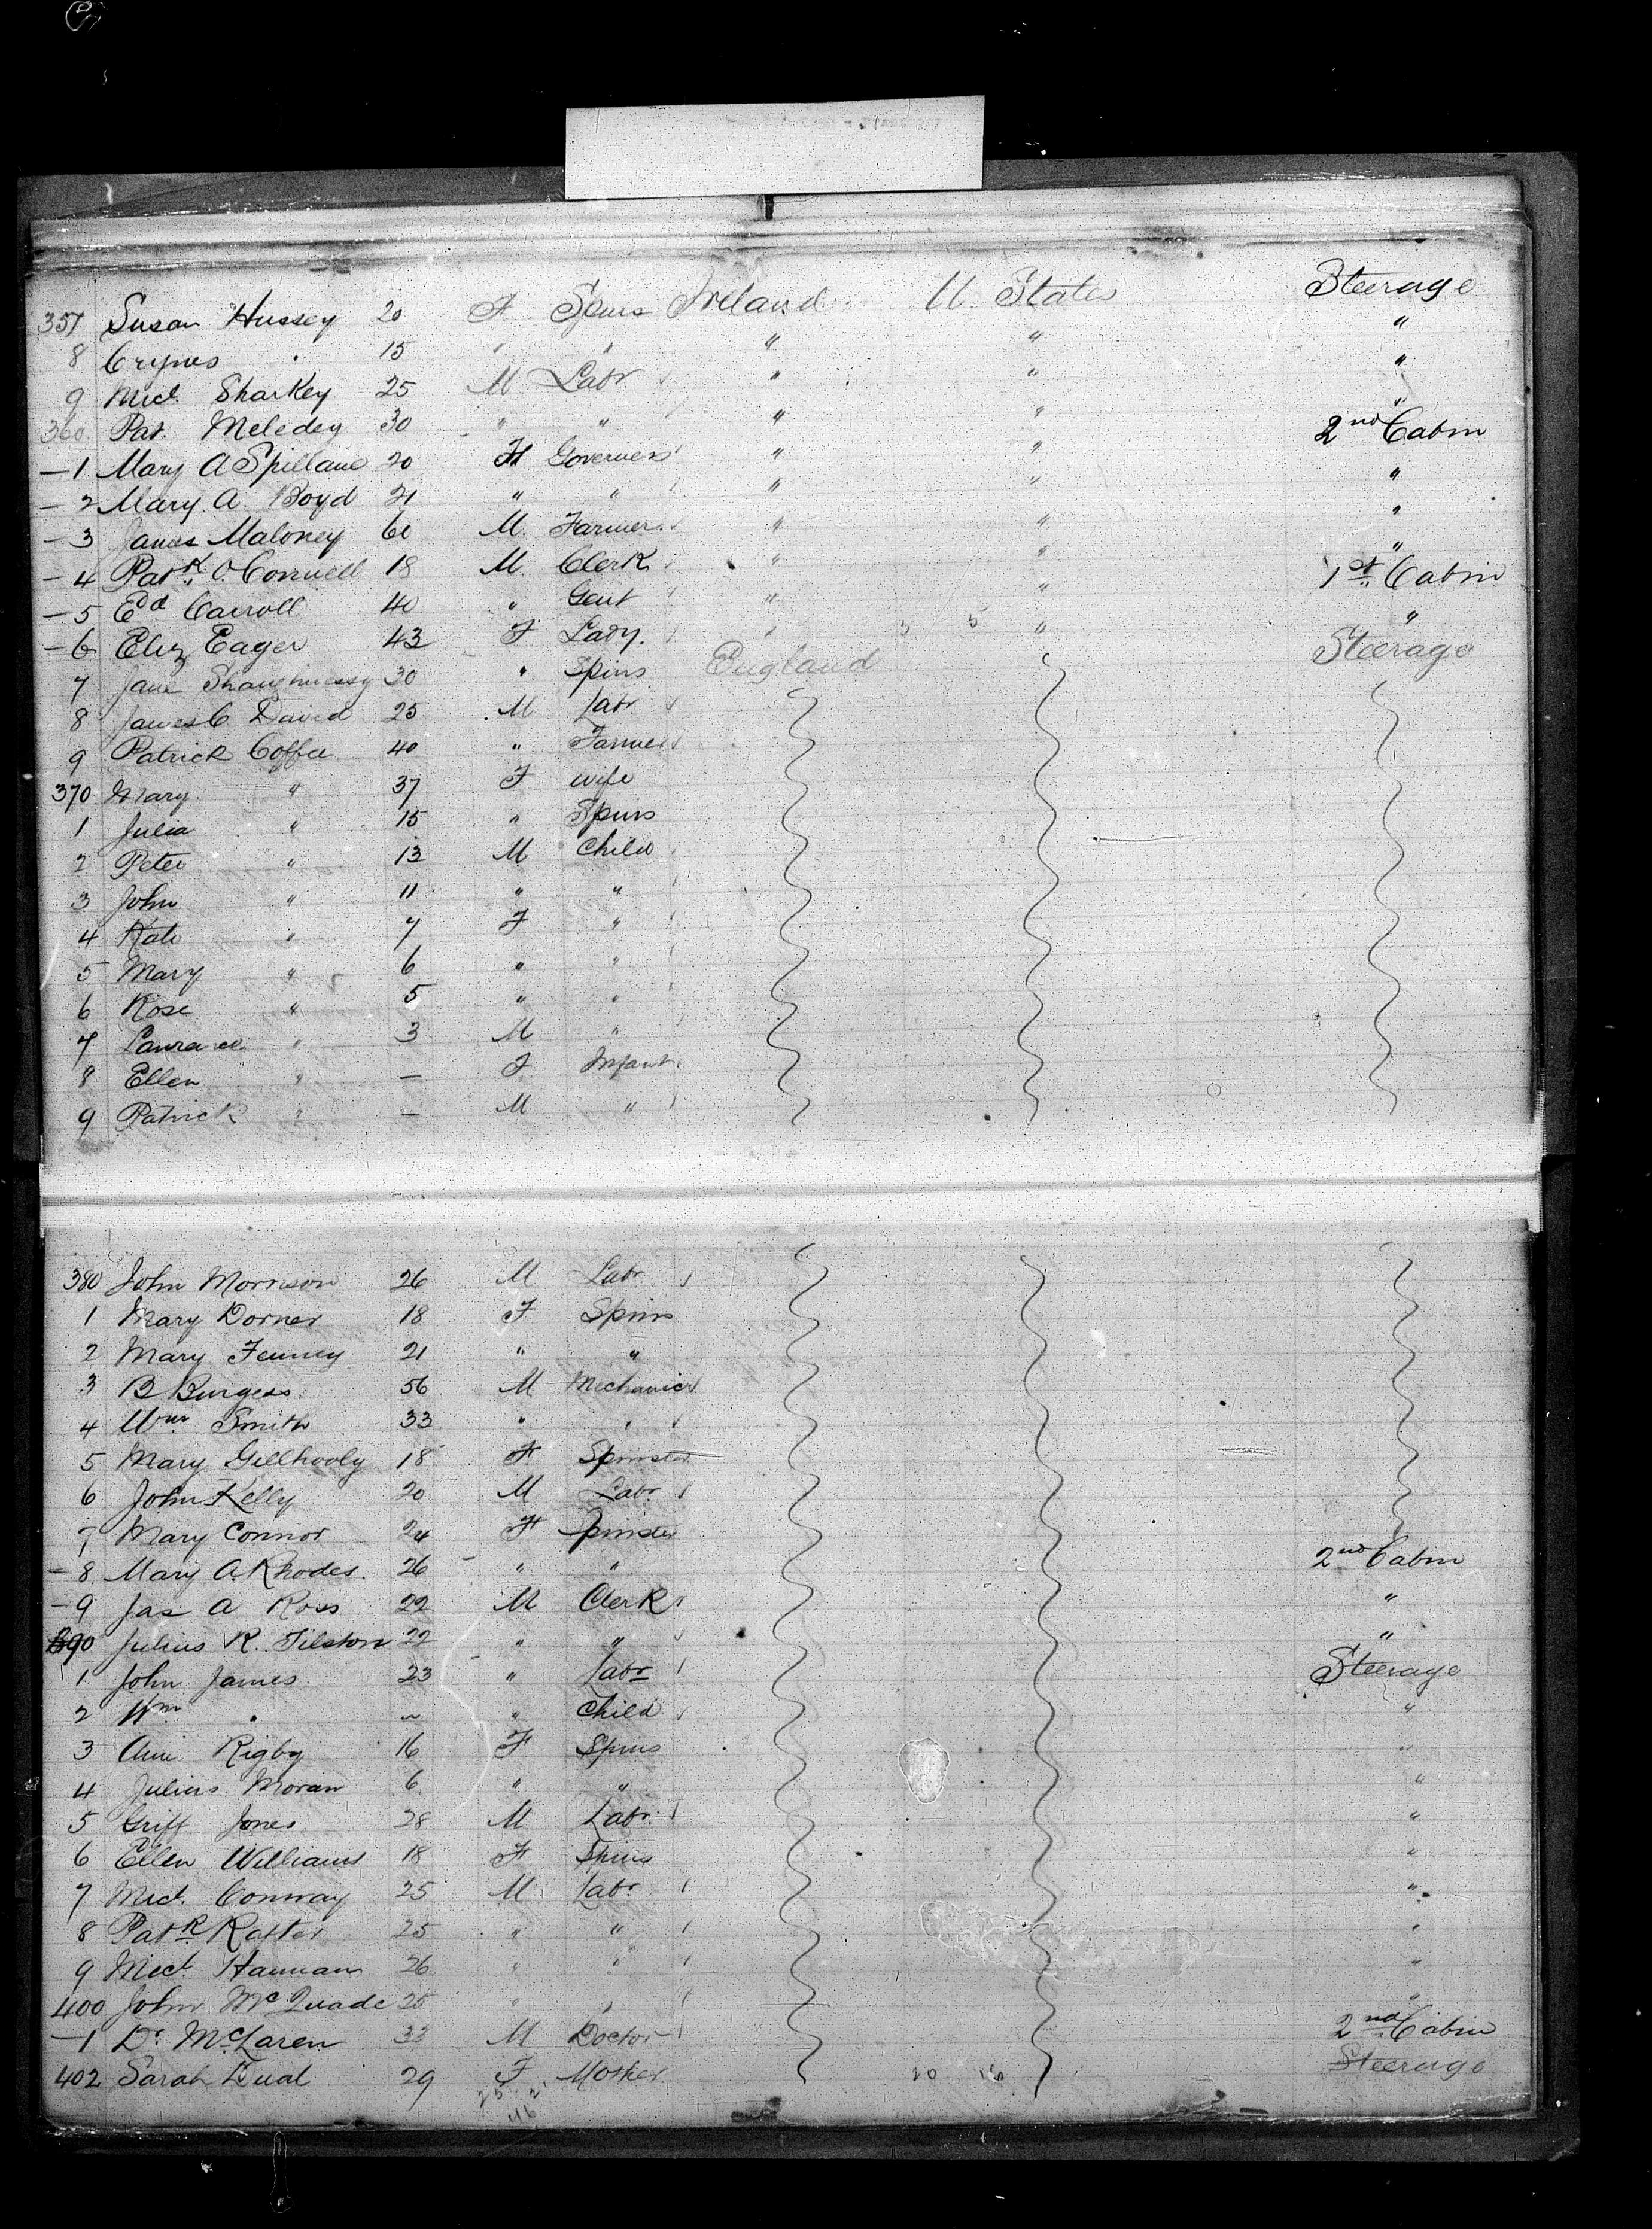 357 Susan Hussey 20 F Spins Ireland U. States Steerage
8 15 " " " " "
9 Micl. Sharkey 25 M Labr " " "
360 Pat. Meledey 30 " " " " "
—1 Mary A Spillane 20 F Governess " " 2nd Cabin
—2 Mary A. Boyd 21 " " " " "
—3 James Maloney 60 M. Farmer " " "
—4 Patk. O'Connell 18 M. Clerk " " "
—5 Ed Carroll 40 " Gent " " 1st Cabin
—6 Eliz Eager 43 F Lady. " " "
7 Jane Shaughnessy 30 " Spins England Steerage
8 James C David 25 M Labr
9 Patrick Coffee 40 " Farmer
370 Mary " 37 F wife
1 Julia " 15 " Spins
2 Peter " 13 M Child
3 John " 11 " "
4 Kate " 7 F "
5 Mary " 6 " "
6 Rose " 5 " "
7 Laurance " 3 M "
8 Ellen " — F Infant
9 Patrick " — M "
380 John Morrison 26 M Labr
1 Mary Dorner 18 F Spins
2 Mary Fenney 21 " "
3 B Burgess 56 M Mechanic
4 Wm Smith 33 " "
5 Mary Gillhooly 18 F Spinster
6 John Kelly 20 M Labr
7 Mary Connor 24 F Spinster
—8 Mary A. Rhodes. 26 " " 2nd Cabin
—9 Jas A Ross 22 M Clerk "
390 Julius R. Tilston 22 " " "
1 John James 23 " Labr Steerage
2 Wm " ~ " Child "
3 Ann Rigby 16 F Spins "
4 Julius Moran 6 " " "
5 Griff Jones 28 M Labr. "
6 Ellen Williams 18 F Spins "
7 Micl. Conway 25 M Labr "
8 Patk Rafter 25 " " "
9 Micl. Hannan 26 " " "
400 John McQuade 25 " " "
—1 Dr. McLaren 33 M Doctor 2nd Cabin
402 Sarah 29 F Mother 20 Steerage